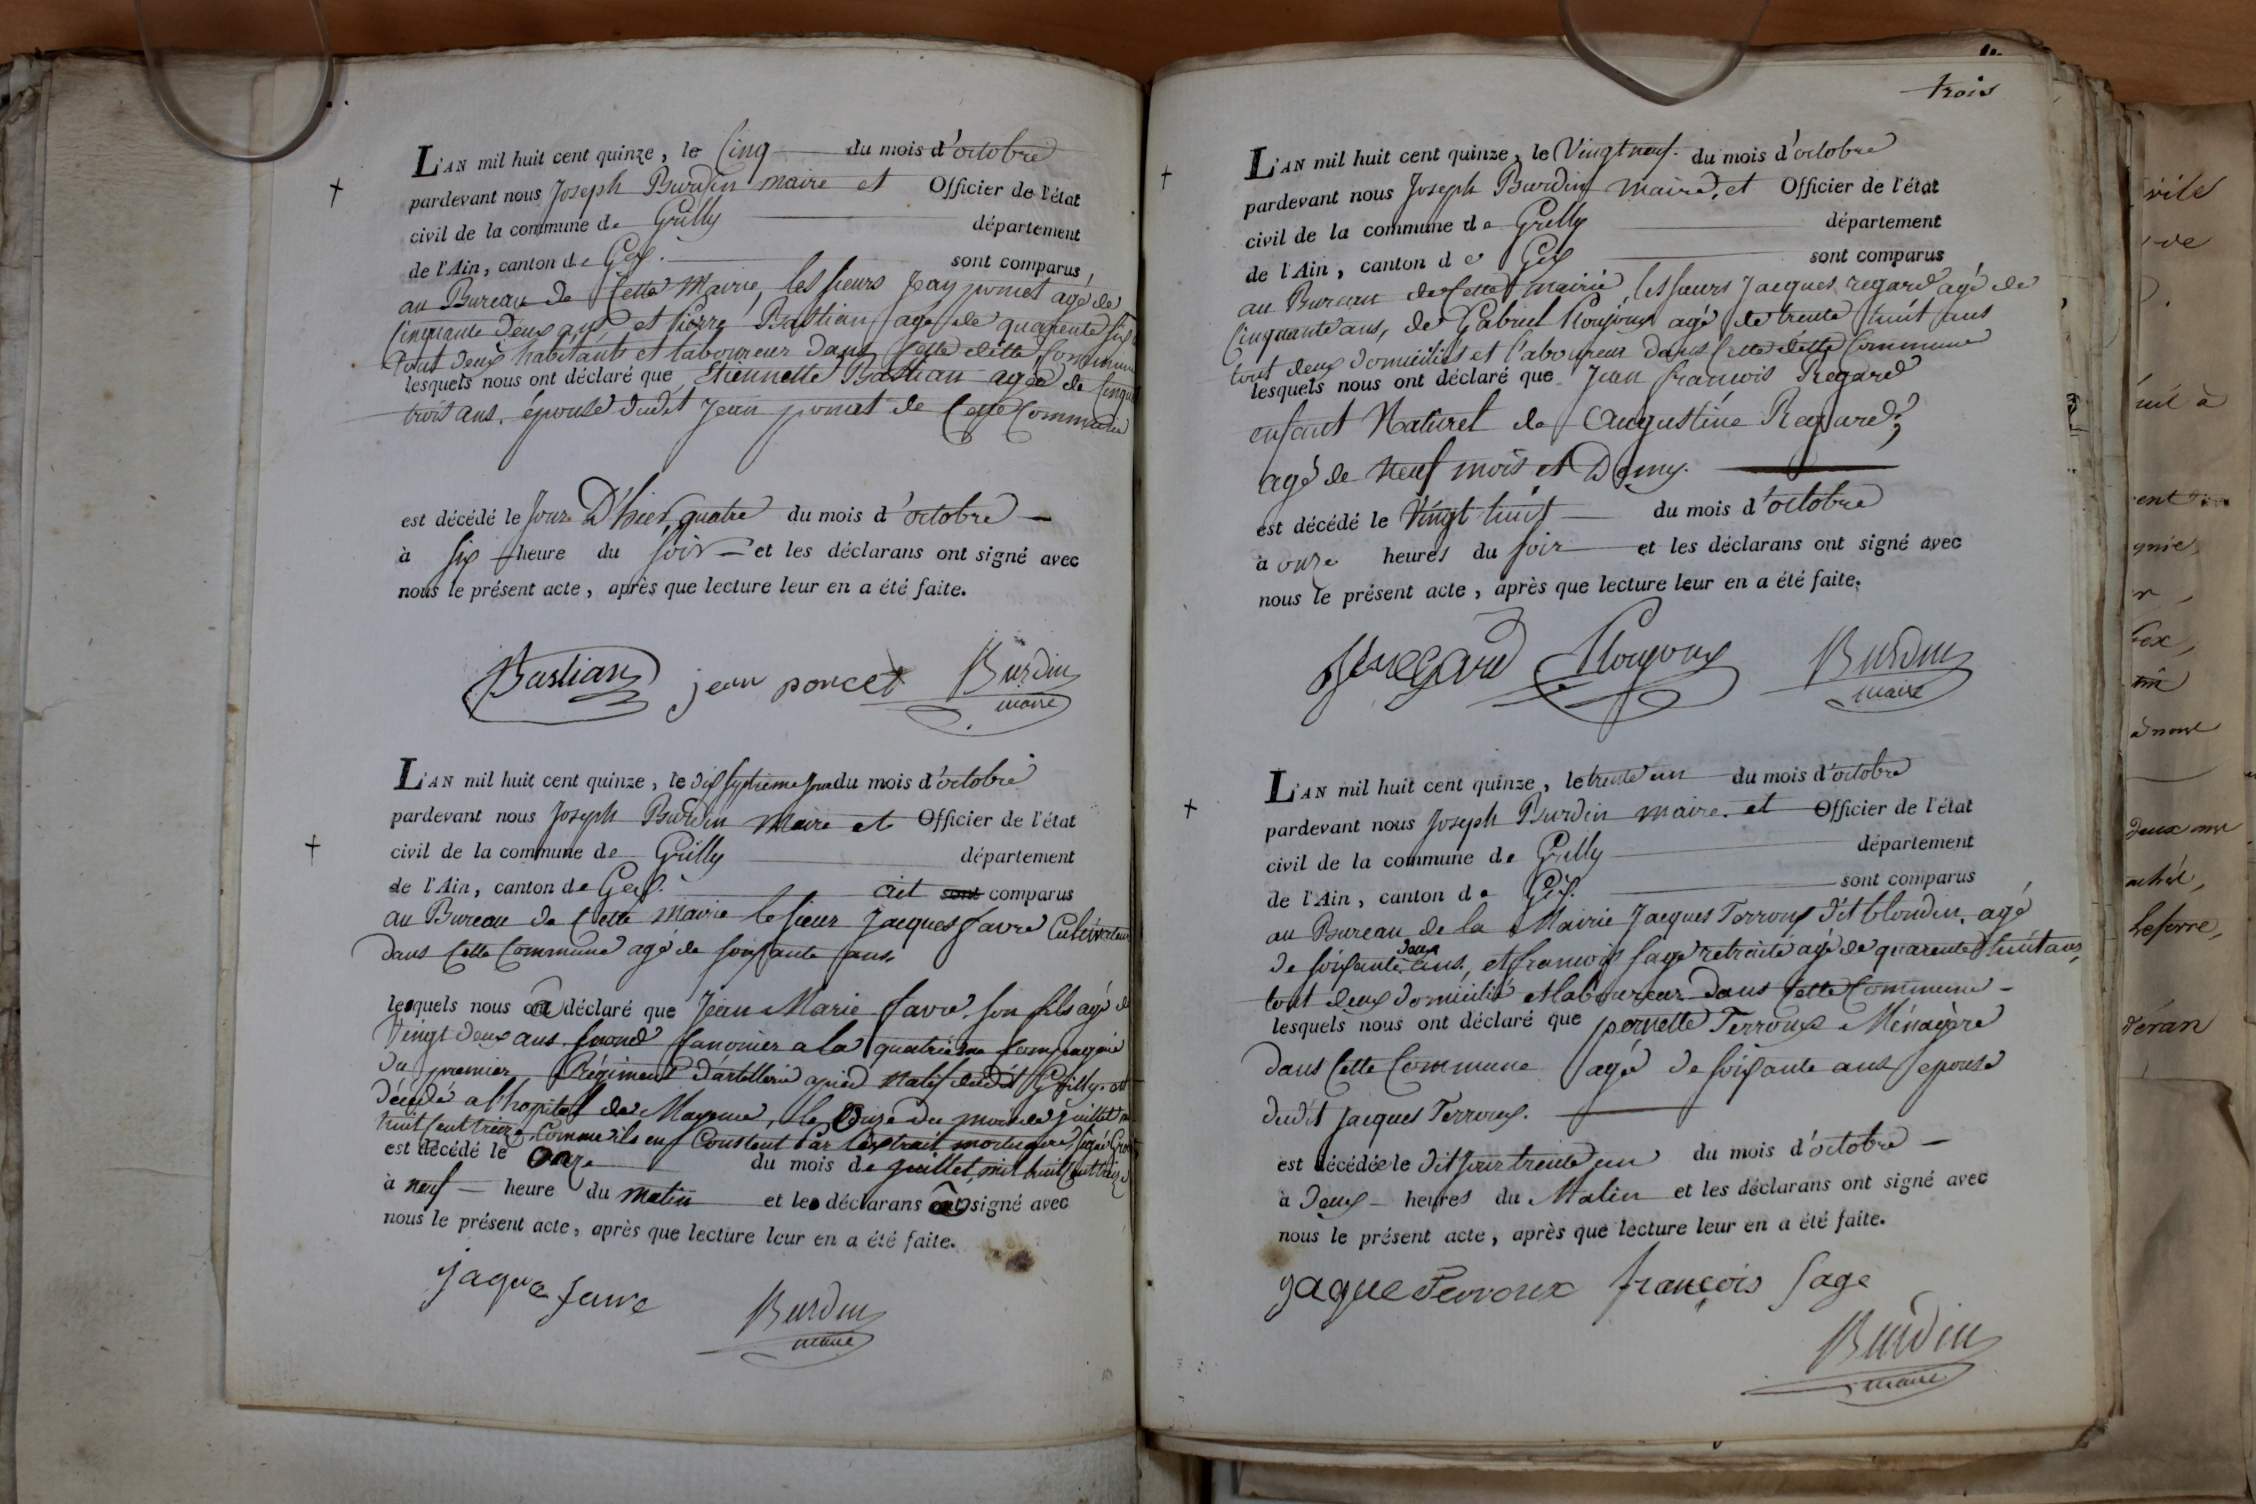 L'AN mil huit cent quinze, le Cinq du mois d'octobre
pardevant nous Joseph Burdin maire et Officier de l'état
civil de la commune de Grilly département
de l'Ain, canton de Gex. sont comparus,
au Bureau de Cette Mairie, les sieurs Jean poncet agé de
Cinquante deux ans et Pierre Bastian agé de quarente six
tout deux habitants et laboureur dans Cette ditte Commune
lesquels nous ont déclaré que Etiennette Bastian agée de Cinqu
trois ans, épouse dudit Jean poncet de Cette Commune
est décédé le jour D'hier quatre du mois d'octobre
à six heure du soir et les déclarans ont signé avec
nous le présent acte, après que lecture leur en a été faite.
Bastian jean poncet Burdin
maire
L'AN mil huit cent quinze, le dix septieme jour du mois d'octobre
pardevant nous Joseph Burdin Maire et Officier de l'état
civil de la commune de Grilly département
de l'Ain, canton de Gex. sont comparus
au Bureau de Cette Mairie le sieur Jacques favre Cultivateur
dans Cette Commune agé de soixante ans
lesquels nous a déclaré que Jean Marie favre son fils agé d
Vingt deux ans second Canonier a la quatrième Compagnie
du premier Régiment d'artillerie apied natif dudit Grilly
décédé a l'hopital de Mayence, le onze du mois de juillet
huit Cent treize Comme ils en Constent par l'extrait mortuaire signé
est décédé le onze du mois de juillet mil huit Cent treize
à neuf heure du matin et les déclarans ont signé avec
nous le présent acte, après que lecture leur en a été faite.
jaque favre Burdin
maire
trois
L'AN mil huit cent quinze, le Vingt neuf du mois d'octobre
pardevant nous Joseph Burdin Maire, et Officier de l'état
civil de la commune de Grilly département
de l'Ain, canton de Gex sont comparus
au Bureau de Cette mairie, les sieurs Jacques regard agé de
Cinquante ans, de Gabriel agé de trente huit ans
tout deux domiciliés et laboureur dans Cette ditte Commune
lesquels nous ont déclaré que Jean francois Regard
enfant Naturel de Augustine Regard,
agé de neuf mois et Demy.
est décédé le Vingt huit du mois d'octobre
à onze heures du soir et les déclarans ont signé avec
nous le présent acte, après que lecture leur en a été faite.
Regard Burdin
maire
L'AN mil huit cent quinze, le trente un du mois d'octobre
pardevant nous Joseph Burdin maire et Officier de l'état
civil de la commune de Grilly département
de l'Ain, canton de Gex. sont comparus
au Bureau de la Mairie Jacques Terroux dit blondin, agé
de soixante deux ans, et francois sage retraité agé de quarente huit ans,
tout deux domicilié et laboureur dans Cette Commune
lesquels nous ont déclaré que pernette Terroux Ménagère
dans Cette Commune agé de soixante ans epouse
dudit Jacques Terroux.
est décédée le dit jour trente un du mois d'octobre
à deux heures du Matin et les déclarans ont signé avec
nous le présent acte, après que lecture leur en a été faite.
jaque Terroux françois sage
Burdin
maire